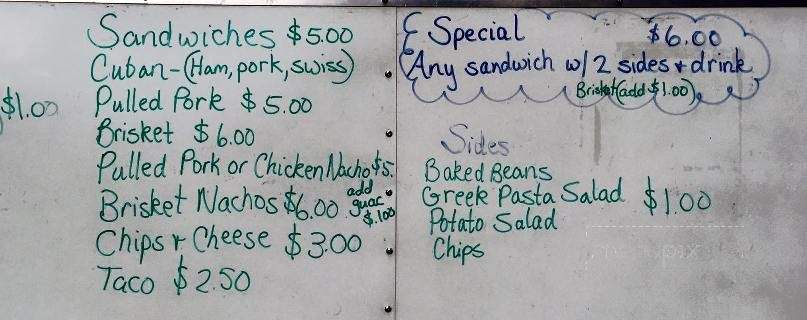 Sandwiches $5.00
Cuban-(Ham, pork, swiss)
$1.00
Pulled Pork $5.00
Brisket $6.00
Pulled Pork or Chicken Nacho $5.
Brisket Nachos $6.00 add guac $.100
Chips & Cheese $3.00
Taco $2.50
Special $6.00
Any sandwich w/ 2 sides + drink
Brisket (add $1.00)
Sides
Baked Beans
Greek Pasta Salad $1.00
Potato Salad
Chips